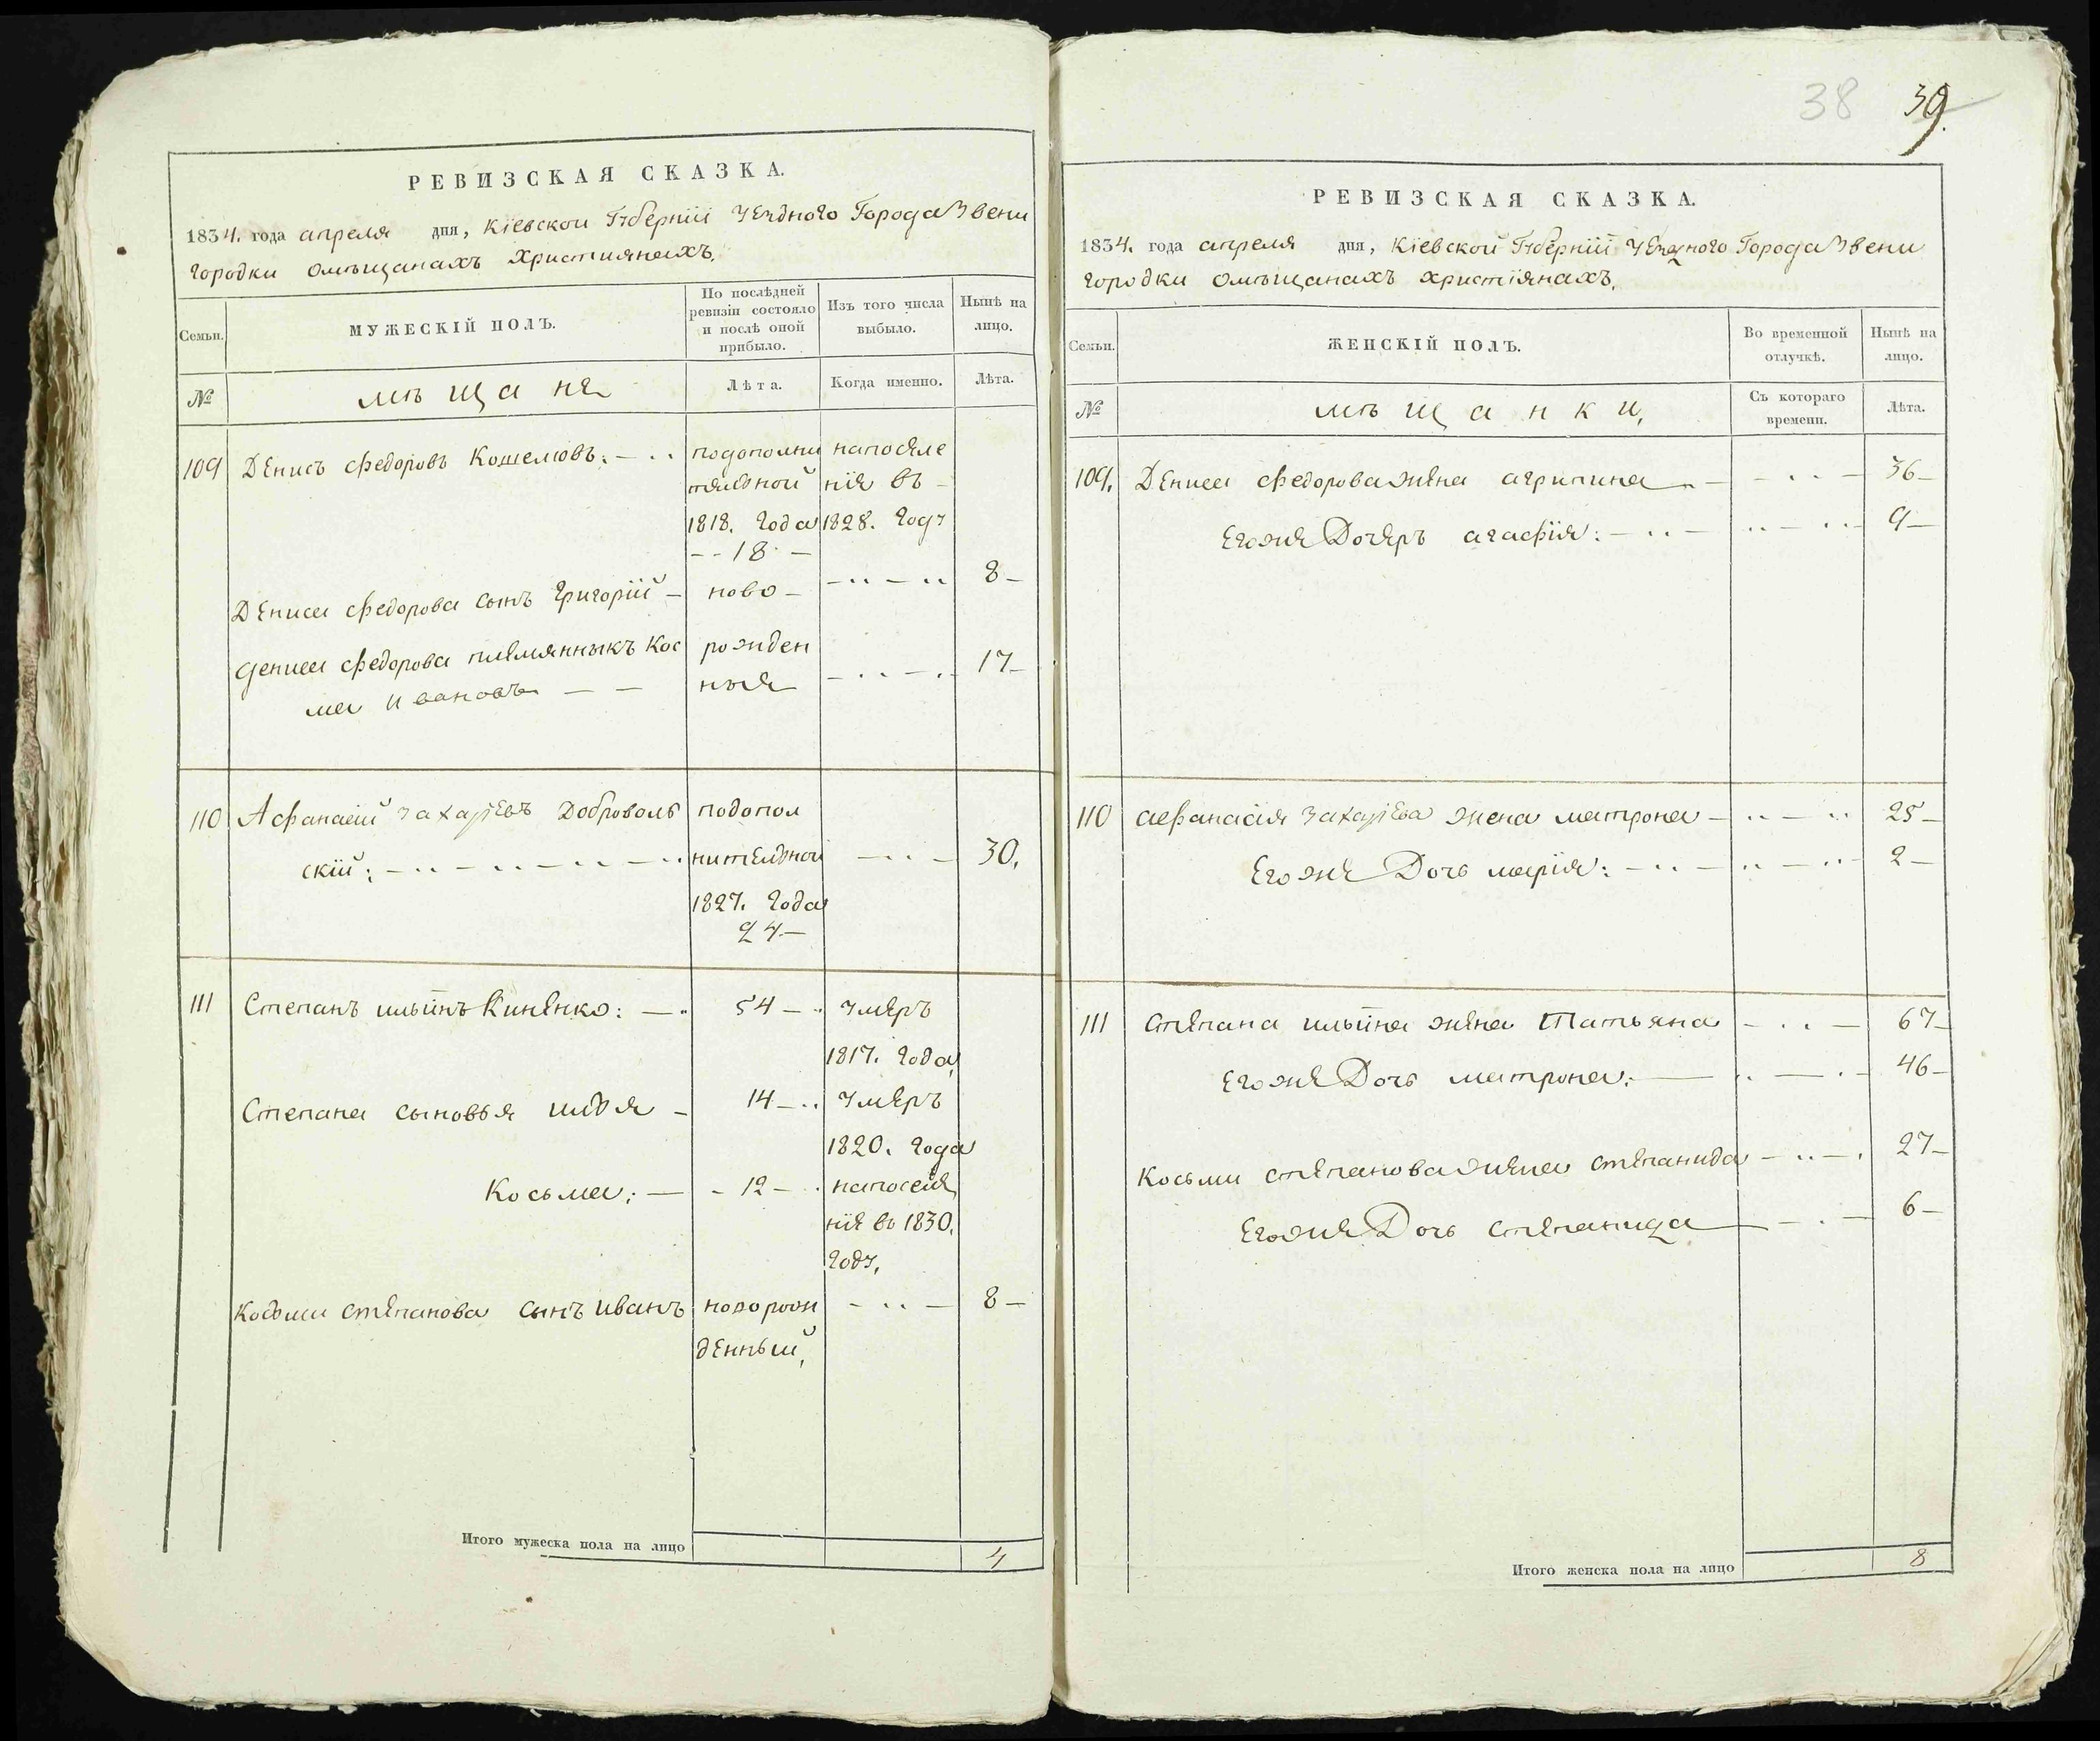 РЕВИЗСКАЯ СКАЗКА.
1834. года апреля дня, Кіевской Губерніи Уезднаго Города Звени
городки омѣщанахъ християнахъ.
Семьи. МУЖЕСКІЙ ПОЛЪ. По послѣдней ревизіи состояло и послѣ оной прибыло. Изъ того числа выбыло. Нынѣ на лицо.
№ мѣщане Лѣта. Когда именно. Лѣта.
109 Денисъ Федоровъ Кошеловъ. подополни напоселе
тельной ніе въ
1818. Года 1828. Году
18
Дениса Федорова сынъ Григорій ново 8
Дениса Федорова племянныкъ Кос рожден 17
ма Ивановъ ные
110 Афанасій Захарiевъ Доброволь подопол
скій: нительной 30.
1827. Года
24
111 Степанъ ильинъ Киненко: 54 умеръ
1817. Года
Степана сыновья илья 14 умеръ
1820. Года
Косьма: 12 напоселе
ніе въ 1830.
Году.
Косьми степанова сынъ иванъ новорож 8
денный,
Итого мужеска пола на лицо 4
38 39
РЕВИЗСКАЯ СКАЗКА.
1834. года апреля дня, Кіевской Губерніи Уезднаго Города Звени
городки омѣщанахъ христіянахъ.
Семьи. ЖЕНСКІЙ ПОЛЪ. Во временной отлучкѣ. Нынѣ на лицо.
№ мѣщанки, Съ котораго времени. Лѣта.
109. Дениса Федорова жена агрипина 36
Егоже Дочеръ агафія: 9
110 афанасія Захарiева жена матрона 25
Егоже Дочь марія: 2
111 степана ильина жена Татьяна 67
Егоже Дочь матрона: 46
Косьми степанова жена степанида 27
Егоже Дочь степанида 6
Итого женска пола на лицо 8